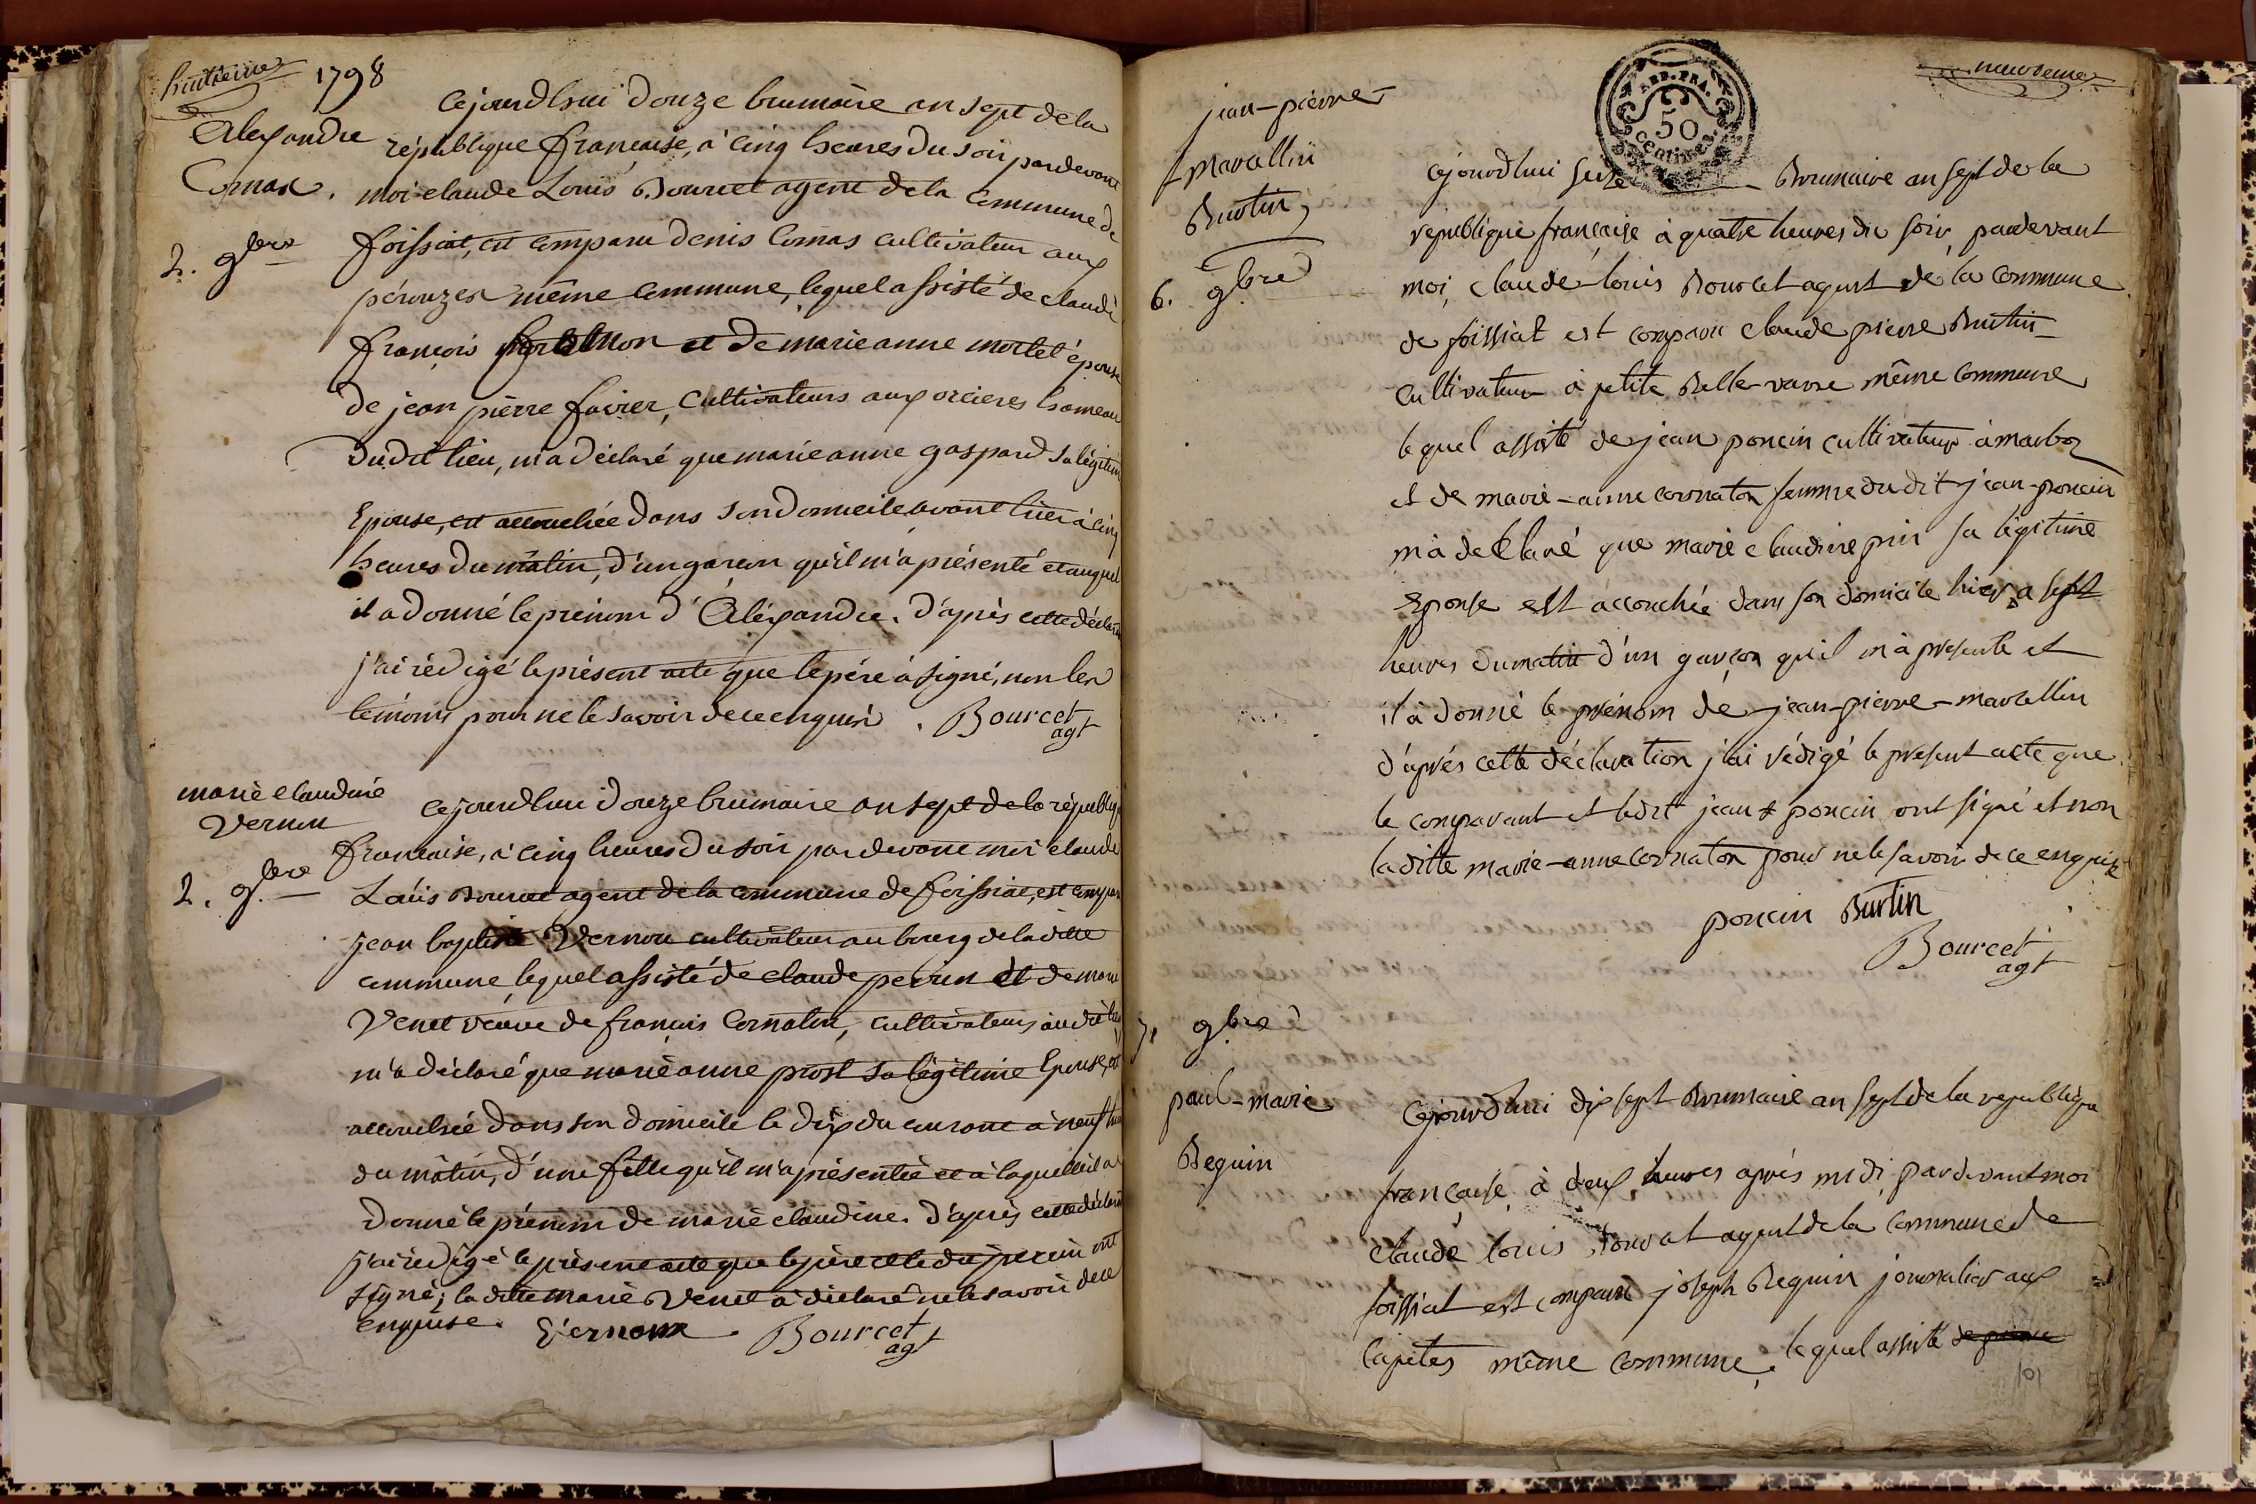 huitieme 1798
Alexandre
Comas.
2. 9bre
Cejourdhui douze brumaire an sept de la
république française, à cinq heures du soir pardevant
moi claude Louis Bourcet agent de la Commune de
foissiat, est comparu denis Comas cultivateur aux
pérouzes même commune, lequel assisté de claude
françois mortel et de marie anne mortel épouse
de jean pierre favier, cultivateurs aux orcieres hameau
dudit lieu, m'a déclaré que marie anne gaspard sa légitime
Epouse, est accouchée dans son domicile avant hier à cinq
heures du mâtin, d'un garçon qu'il m'a présenté et auquel
il a donné le prénom d'Aléxandre. d'après cette déclara
j'ai rédigé le présent acte que le père à signé, non les
témoins pour ne le savoir de ce enquis. Bourcet
agt
marie claudine
Vernou
2. 9bre
Cejourdhui douze brumaire an sept de la républiq
française, à cinq heures du soir pardevant moi claude
Louis Bourcet agent de la commune de foissiat, est compar
jean baptiste Vernou cultivateur au bourg de la ditte
commune lequel assisté de claude perrin et de marie
Venet veuve de françois Cornaton, cultivateurs audit lieu
m'a déclaré que marie anne prost sa légitime Epouse, est
accouchée dans son domicile le dix du courant à neuf heu
du mâtin, d'une fille qu'il m'a présentée et à laquelle il a
donné le prénom de marie claudine. d'après cette déclara
j'ai rédigé le présent acte que le père et ledit perrin ont
signé; la ditte marie Venet à déclaré ne le savoir de ce
enquise. Vernoux Bourcet
agt
neuvieme
ADD. FRA.
50
centimes
jean-pierre
Marcellin
Burtin
6. 9bre
Cejourdhui seize Brumaire an sept de la
république française à quatre heures du soir, pardevant
moi, claude louis Bourcet agent de la commune
de foissiat est comparu claude pierre Burtin
cultivateur à petite Belle-varre même commune
lequel assisté de jean poncin cultivateur à marboz
et de marie-anne cornaton femme dudit jean poncin
m'à déclaré que marie claudine pin sa légitime
Epouse est accouchée dans son domicile hier a sept
heures du matin d'un garçon qu'il m'a présenté et
il à donné le prénom de jean-pierre-marcellin
d'après cette déclaration j'ai rédigé le présent acte que
le comparant et ledit jean poncin ont signé et non
laditte marie-anne cornaton pour ne le savoir de ce enquise
poncin Burtin
Bourcet
agt
7. 9bre
paul-marie
Beguin
Cejourdhui dix sept Brumaire an sept de la république
française à deux heures après midi, pardevant moi
claude louis Bourcet agent de la commune de
foissiat est comparu joseph Beguin journalier aux
Capetes même commune, lequel assisté de pierre
101